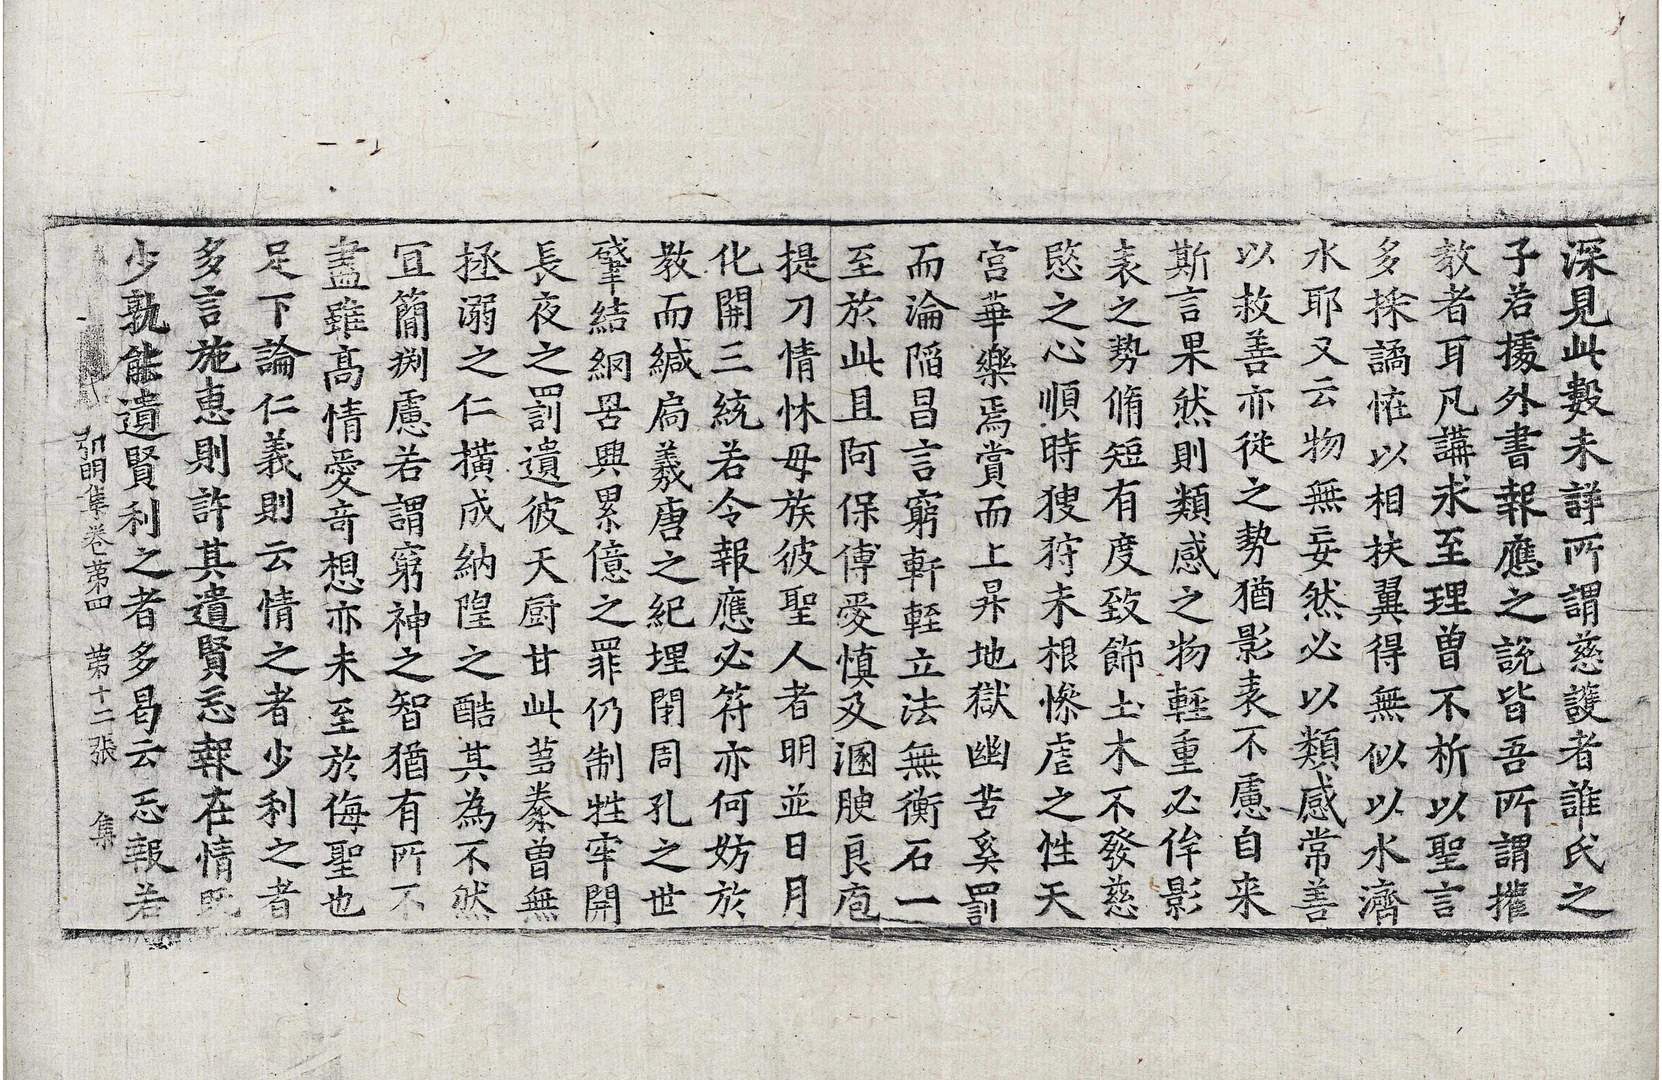 深見此數未詳所謂慈護者誰氏之
子若據外書報應之說皆吾所謂權
教者耳凡講求至理曾不析以聖言
多採譎恠以相扶翼得無似以水濟
水耶又云物無妄然必以類感常善
以救善亦從之勢猶影表不慮自来
斯言果然則類感之物輕重必侔影
表之勢脩短有度致飾土木不發慈
愍之心順時獀狩未根慘虐之性天
宮華樂焉賞而上昇地獄幽苦奚罰
而淪陷昌言窮軒輊立法無衡石一
至於此且阿保傅愛慎及溷腴良庖
提刀情怵毋族彼聖人者明並日月
化開三統若令報應必符亦何妨於
教而緘扃羲唐之紀埋閉周孔之世
肇結網罟興累億之罪仍制牲牢開
長夜之罰遺彼天厨甘此芻豢曾無
拯溺之仁橫成納隍之酷其為不然
宜簡淵慮若謂窮神之智猶有所不
盡雖高情愛奇想亦未至於侮聖也
足下論仁義則云情之者少利之者
多言施惠則許其遺賢忘報在情既
少孰能遺賢利之者多曷云忘報若
弘明集卷第四 第十二張 集